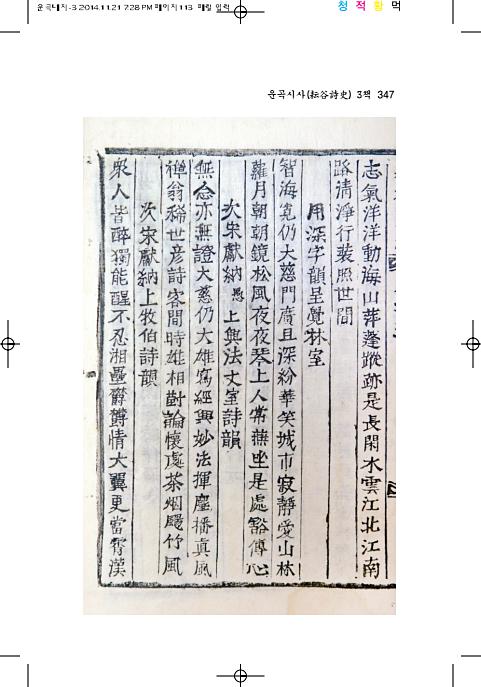 운곡내지-3 2014.11.21 7:28 PM 페이지113 매킬 입력
청 적 황 먹
운곡시사(耘谷詩史) 3책 347
志氣洋洋動海山萍蓬蹤跡是長閑水雲江北江南
路清淨行裝照世間
用深字韻呈覺林室
智海寬仍大慈門廣且深紛華笑城市寂靜愛山林
蘿月朝朝鏡松風夜夜琴上人常燕坐是處豁傳心
次宋獻納愚上興法丈室詩韻
無念亦無證大慈仍大雄寫經興妙法揮麈播眞風
禅翁稀世彦詩客間時雄相對論懷處茶烟颺竹風
次宋獻納上牧伯詩韻
衆人皆醉獨能醒不忍湘纍欝欝情大翼更當霄漢